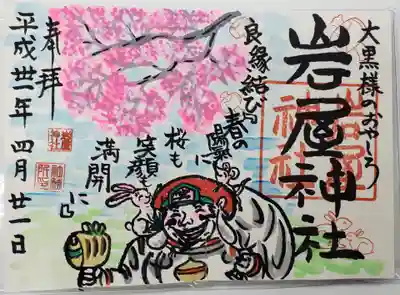 大黒様のおやしろ
岩屋神社
良縁結び
春の
陽気に
桜も
笑顔も
満開
に
奉拝
平成卅一年 四月 廿一日
岩屋神社